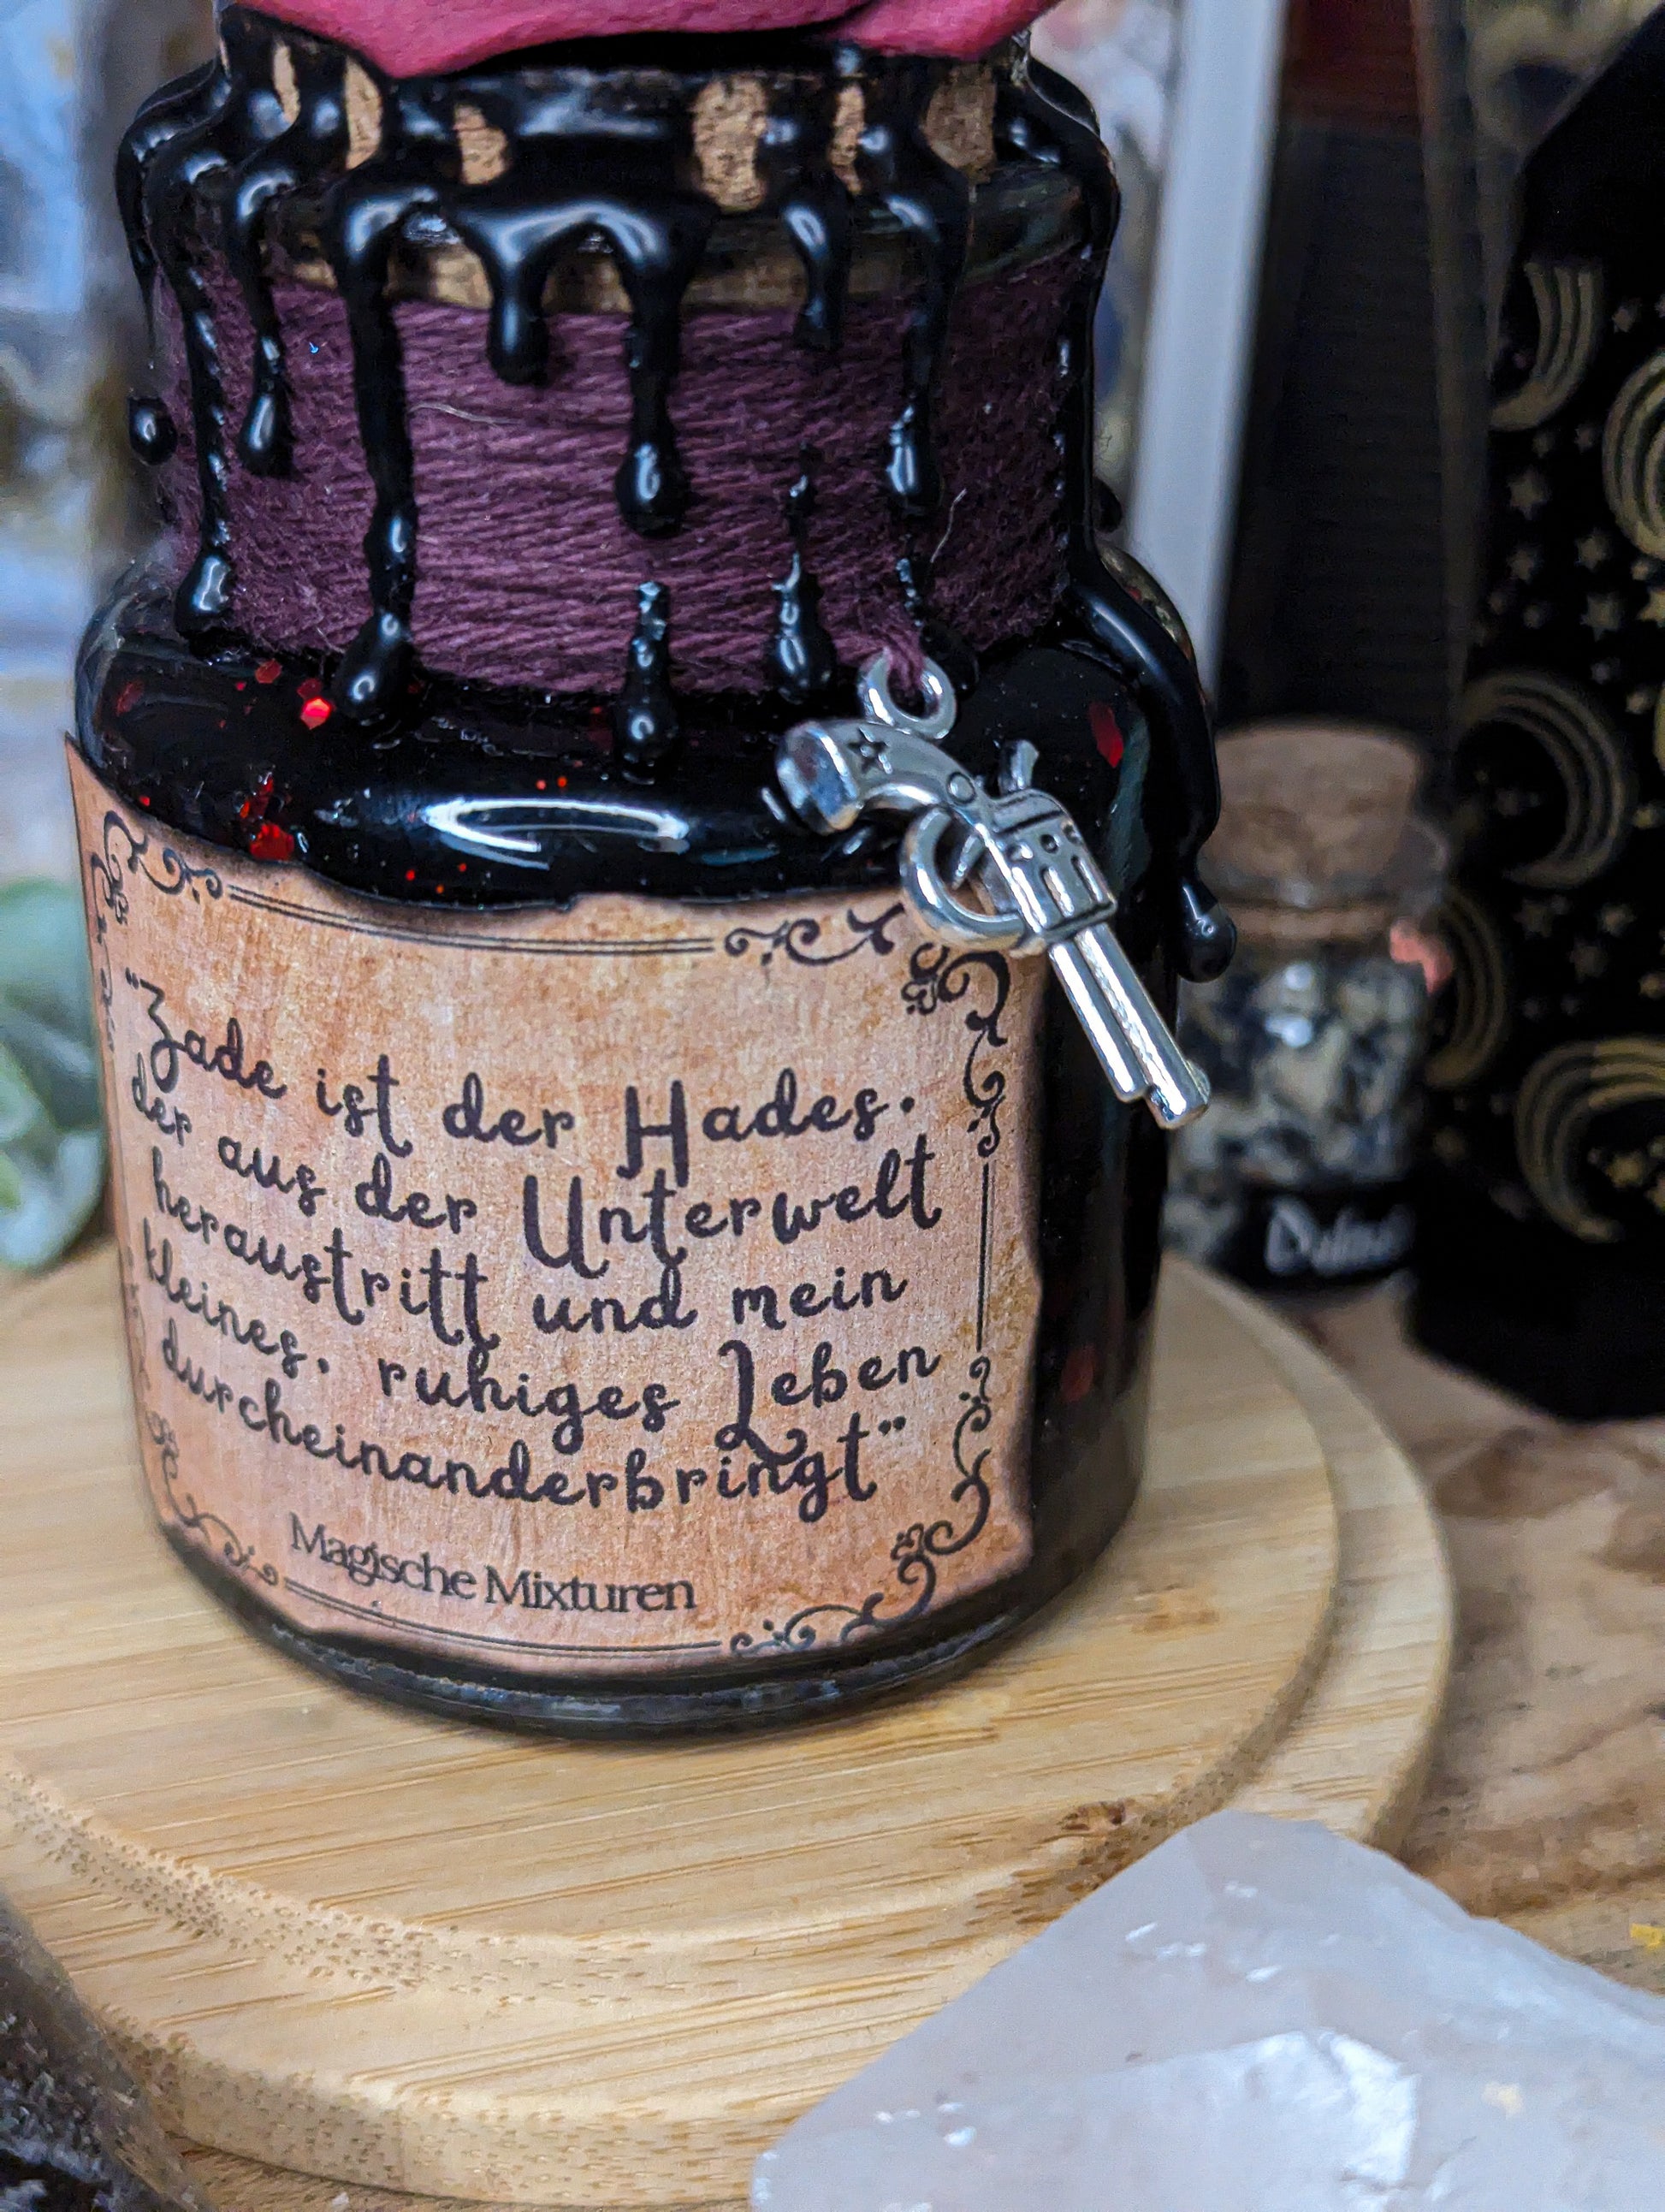 "Zade ist der Hades.
der aus der Unterwelt
heraustritt und mein
kleines. ruhiges Leben
durcheinanderbringt"
Magische Mixturen